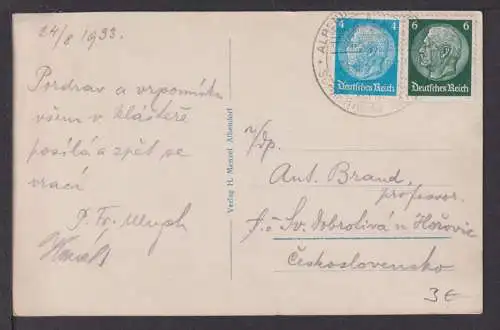 24/8 1933.
Pozdrav a vzpomínku
všem v klášteře
posílá a zpět se
vrací
P. Fr.
Verlag H. Menzel, Albendorf
ALBEN
4 4
Deutsches Reich
6 6
Deutsches Reich
Ant. Brand,
professor.
Sv. Dobrotivá u Hořovic
Československo
3€